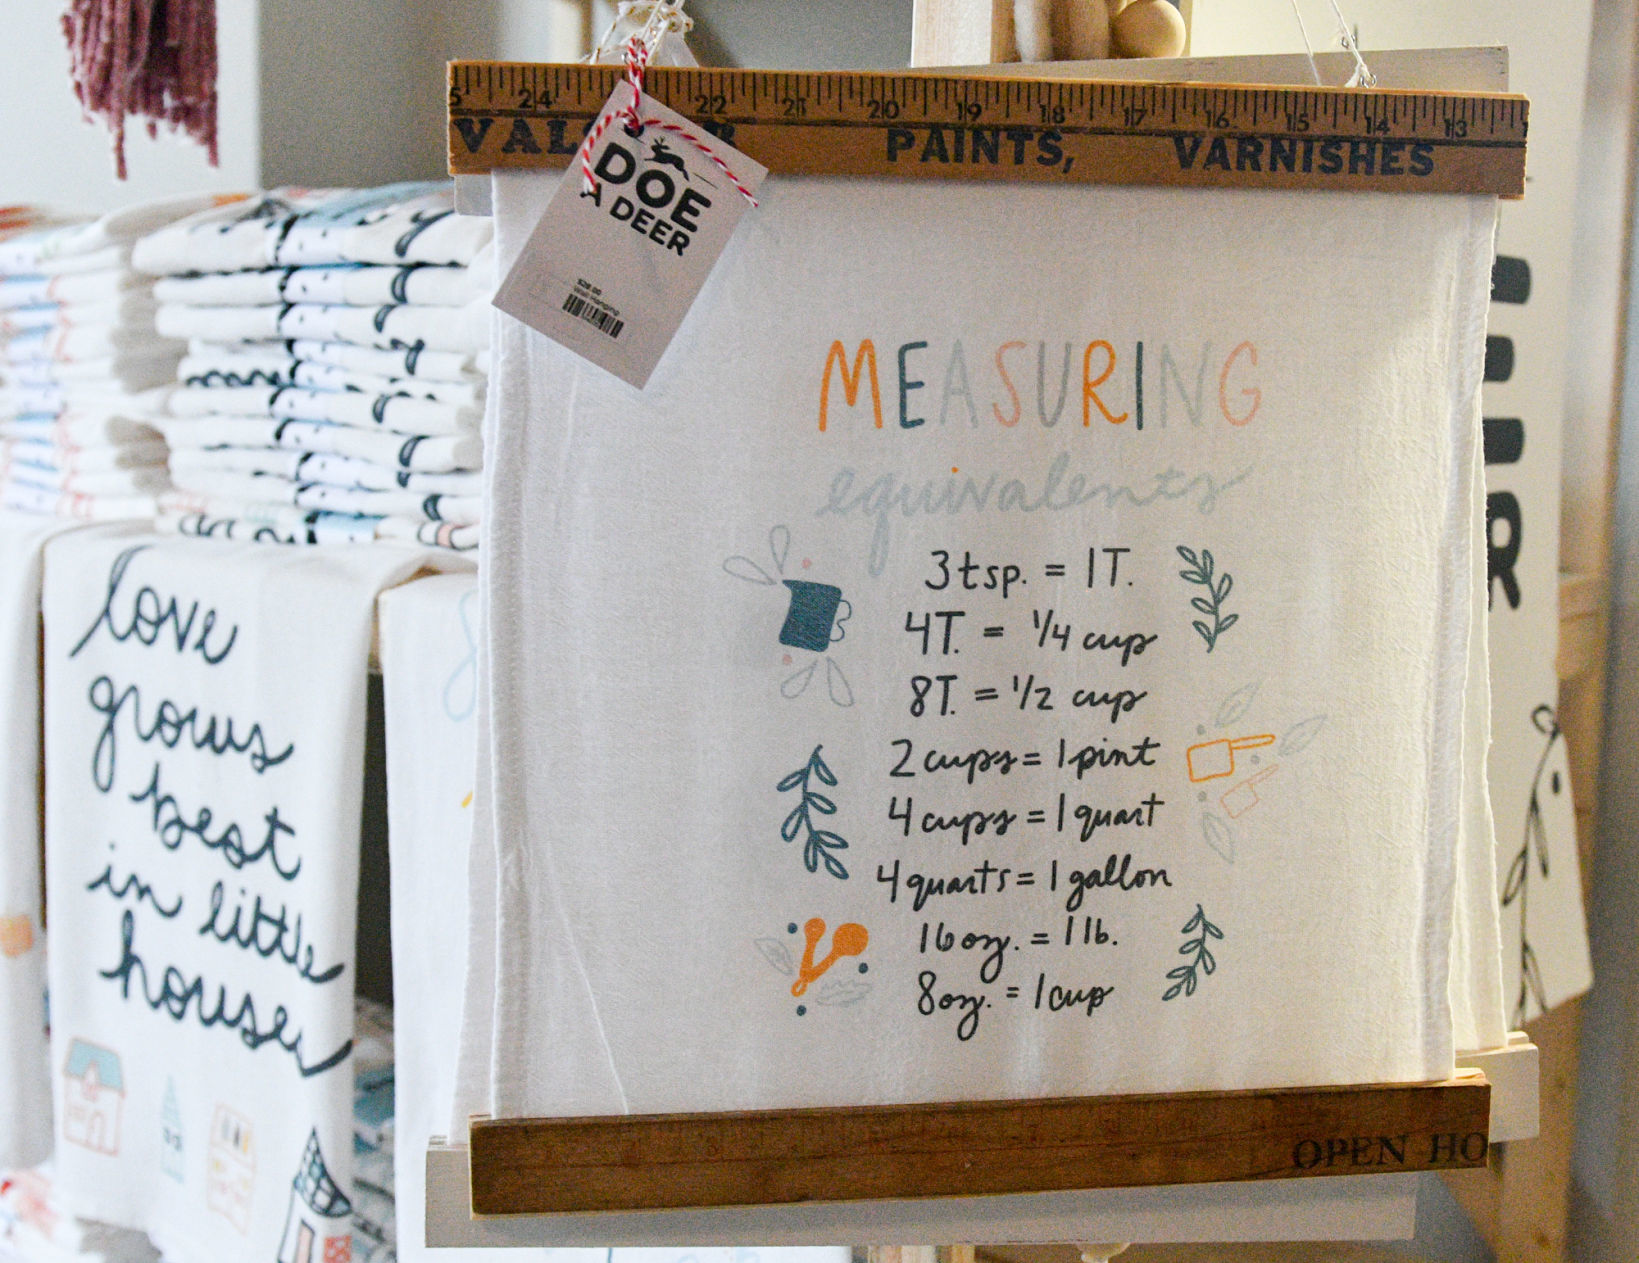 5 24 22 21 20 19 18 17 16 15 14 13
PAINTS, VARNISHES
DOE
A DEER
$28.00
Wall Hanging
MEASURING
equivalents
3 tsp. = 1T.
4T. = 1/4 cup
8T. = 1/2 cup
2 cups = 1 pint
4 cups = 1 quart
4 quarts = 1 gallon
16 oz. = 1 lb.
8 oz. = 1 cup
OPEN HO
love
grows
best
in little
houses
R